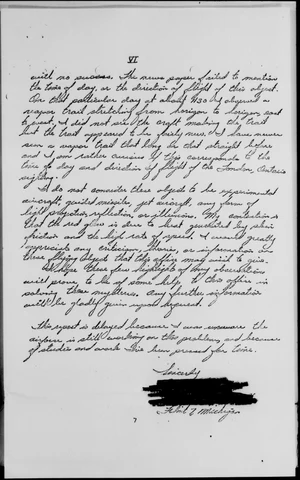 VI
with no success. The news paper failed to mention
the time of day, or the direction of flight of this object.
On that particular day at about 4:30 I observed a
vapor trail stretching from horizon to horizon east
to west, I did not see the craft making the trail
but the trail appeared to be fairly new. I have never
seen a vapor trail that long be that straight before
and I am rather curious if this corresponds to the
time of day and direction of flight of the London, Ontario
sighting.
I do not consider these objects to be experimental
aircraft, guided missiles, jet aircraft, any form of
light projection, reflection, or illusions. My contention is
that the red glow is due to heat generated by skin
friction and the high rate of speed. I would greatly
appreciate any criticism, theories, or information on
these flying objects that this office may wish to give.
I hope these few highlights of my observations
will prove to be of some help to this office in
solving these mysteries. Any further information
will be gladly given upon request.
This report is delayed because I was unaware the
airforce is still working on this problem, and because
of studies and work I've been pressed for time.
Sincerely
Michigan
7